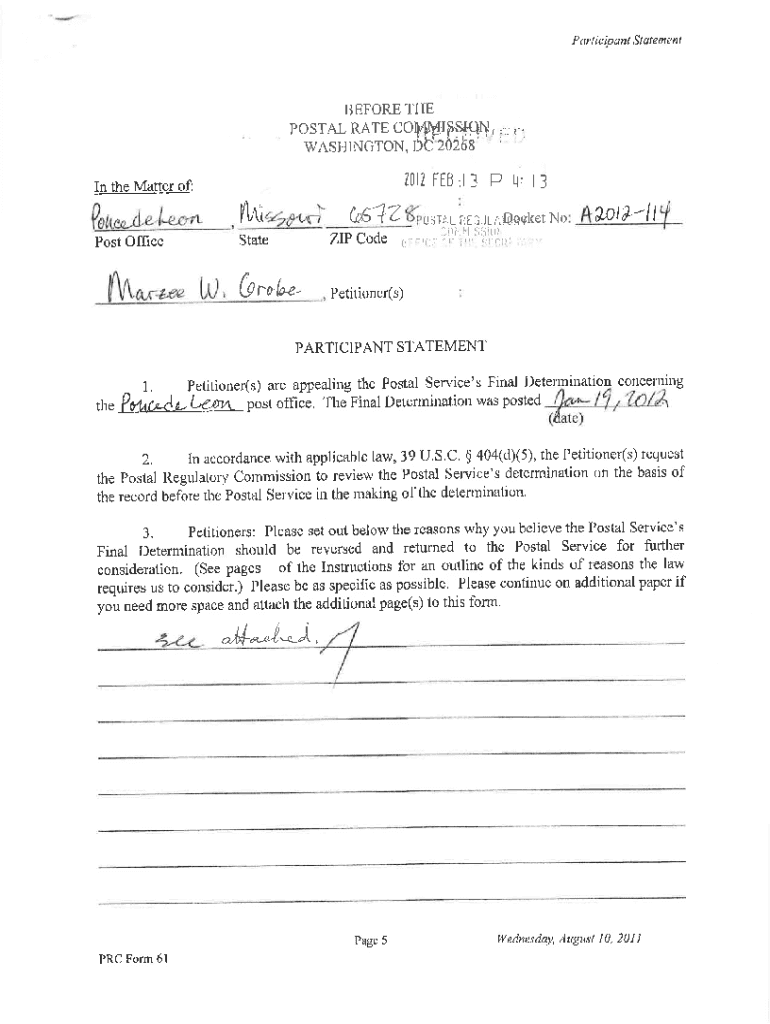 Participant Statement
BEFORE THE
POSTAL RATE COMMISSION
WASHINGTON, DC 20268
RECEIVED
2012 FEB 13 P 4: 13
In the Matter of:
Poncedeleon, Missouri 65728 Docket No: A2012-114
POSTAL REGULATORY
COMMISSION
OFFICE OF THE SECRETARY
Post Office State ZIP Code
W. Grobe, Petitioner(s) :
PARTICIPANT STATEMENT
1. Petitioner(s) are appealing the Postal Service's Final Determination concerning
the Poncedeleon post office. The Final Determination was posted Jan 19, 2012
(date)
2. In accordance with applicable law, 39 U.S.C. § 404(d)(5), the Petitioner(s) request
the Postal Regulatory Commission to review the Postal Service's determination on the basis of
the record before the Postal Service in the making of the determination.
3. Petitioners: Please set out below the reasons why you believe the Postal Service's
Final Determination should be reversed and returned to the Postal Service for further
consideration. (See pages of the Instructions for an outline of the kinds of reasons the law
requires us to consider.) Please be as specific as possible. Please continue on additional paper if
you need more space and attach the additional page(s) to this form.
see attached.
Page 5 Wednesday, August 10, 2011
PRC Form 61